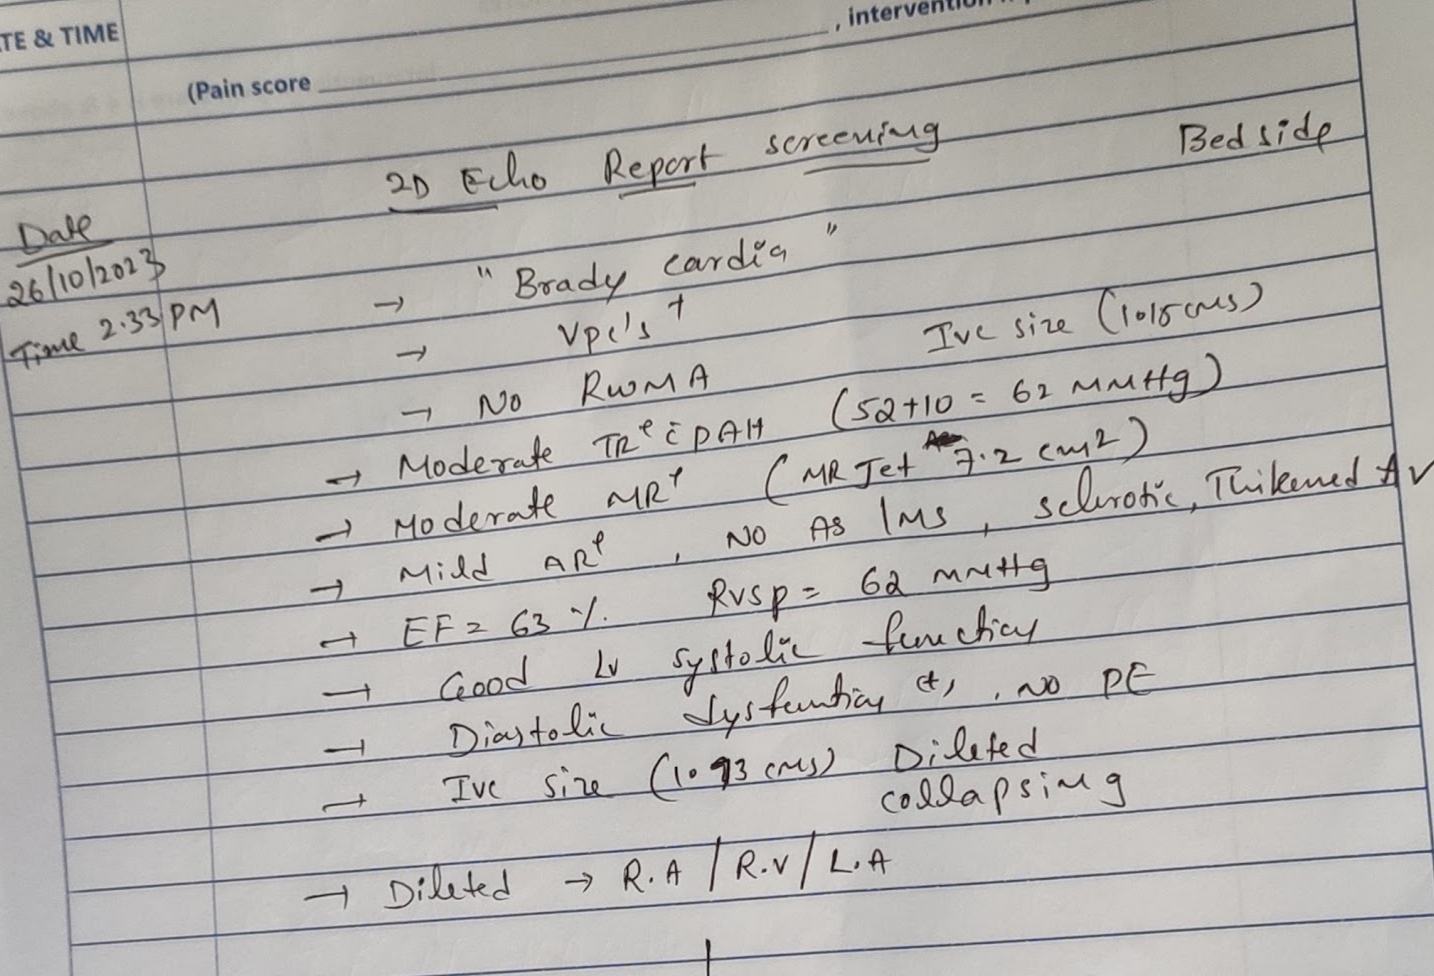 TE & TIME
, intervention
(Pain score
2D Echo Report screening Bedside
Date
26/10/2023
Time 2.33 PM
→ "Brady cardia"
→ Vpc's +
Ivc size (1.18 cms)
→ No RWMA
→ Moderate TR+ c̄ PAH (52+10 = 62 mmHg)
→ Moderate MR+ (MR Jet 7.2 cm2)
→ Mild AR+, NO AS/MS, sclerotic, Thikened AV
→ EF = 63 %. RVSP = 62 mmHg
→ Good LV systolic function
→ Diastolic dysfuntion (+), NO PE
→ Ivc size (1.93 cms) Dileted
collapsing
→ Dileted → R.A / R.V / L.A